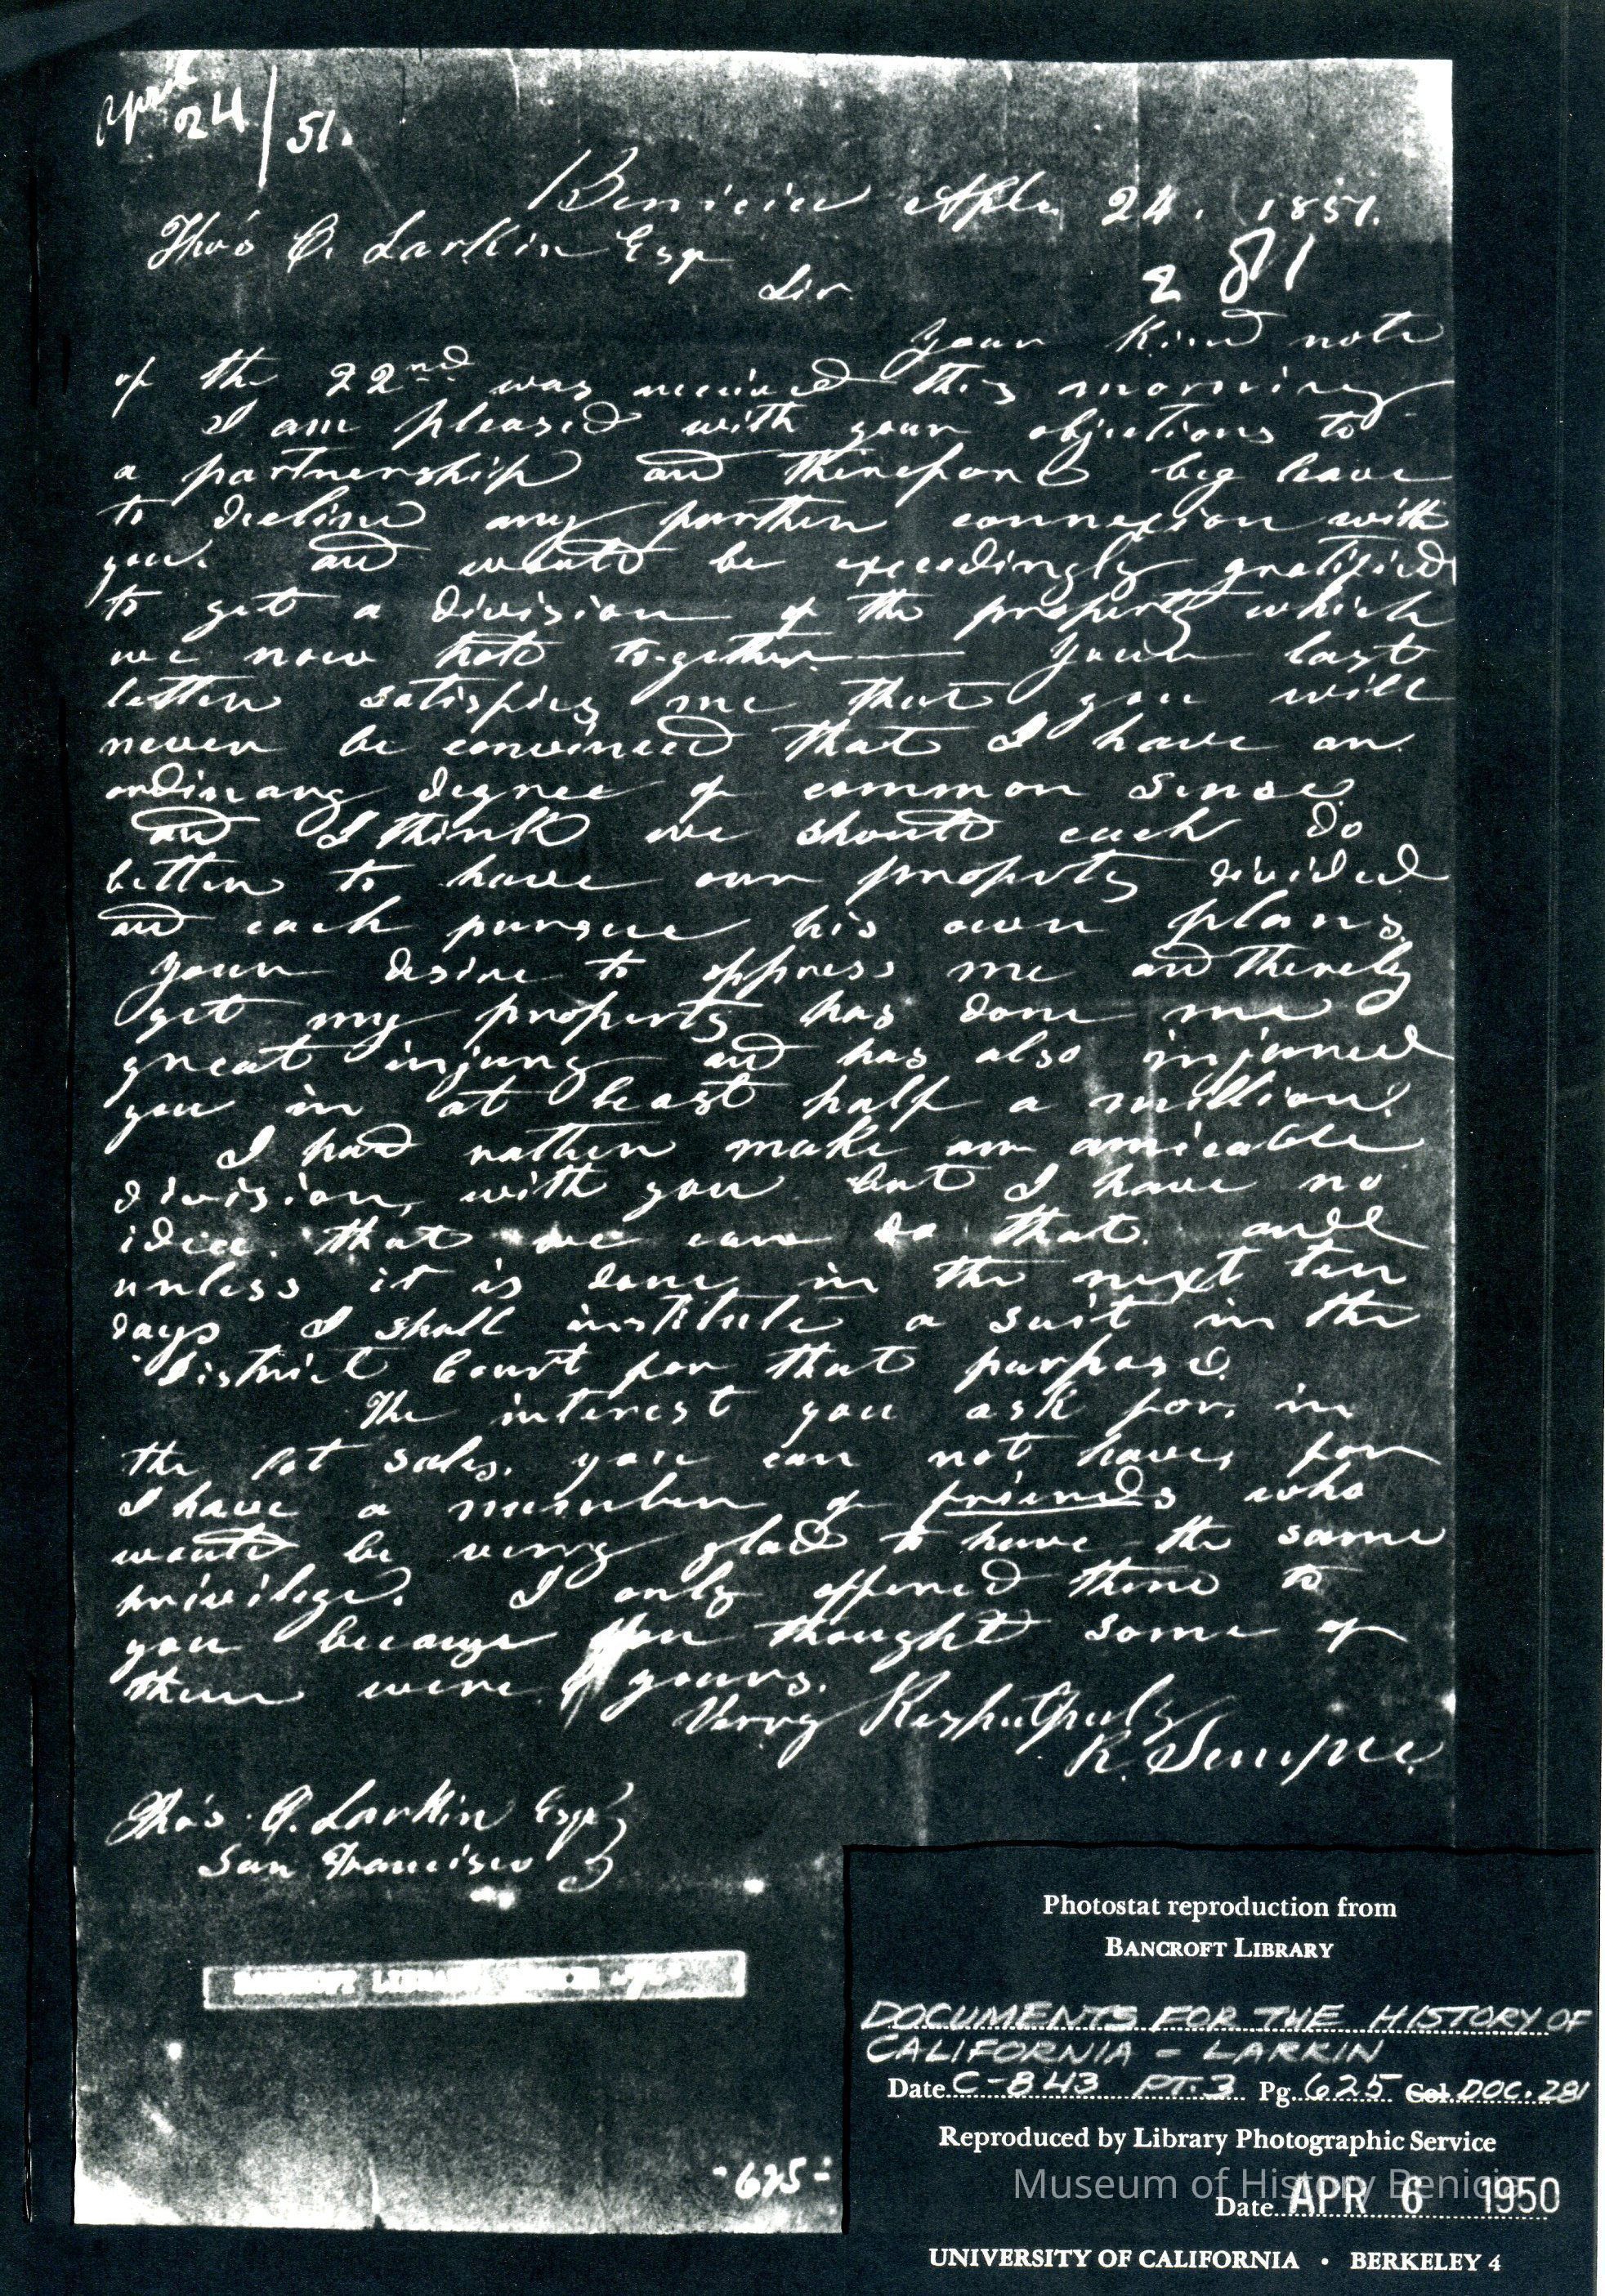 April
24/51.
Benicia Apl. 24. 1851.
Tho's O. Larkin Esqr
Sir.
281
Your kind note
of the 22nd was received this morning
I am pleased with your objections to
a partnership and therefore beg leave
to decline any further connexion with
you. and would be exceedingly gratified
to get a division of the property which
we now hold to-gether. — Your last
letter satisfies me that you will
never be convinced that I have an
ordinary degree of common sense.
and I think we should each do
better to have our property divided
and each pursue his own plans
Your desire to oppress me and thereby
get my property has done me
great injury and has also injured
you in at least half a million.
I had rather make an amicable
division, with you but I have no
idea. that we can do that. and
unless it is done in the next ten
days I shall institute a suit in the
District Court for that purpose.
The interest you ask for, in
the lot sales. you can not have, for
I have a number of friends who
would be verry glad to have the same
privilege. I only offered them to
you because you thought some of
them were yours.
Verry Respectfuly
R. Semple.
Tho's O. Larkin Esqr
San Francisco
BANCROFT LIBRARY
-625-
Photostat reproduction from
BANCROFT LIBRARY
DOCUMENTS FOR THE HISTORY OF
CALIFORNIA - LARKIN
Date C-843 PT.3 Pg. 625 Col. DOC. 281
Reproduced by Library Photographic Service
Museum of History Benicia
Date APR 6 1950
UNIVERSITY OF CALIFORNIA • BERKELEY 4